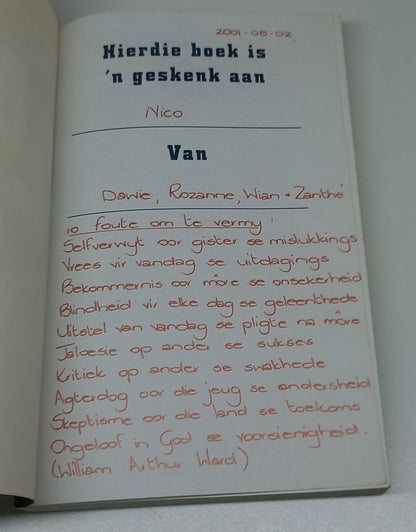 2001.09.02
Hierdie boek is
'n geskenk aan
Nico
Van
Dawie, Rozanne, Wian & Zanthé
10 foute om te vermy:
Selfverwyt oor gister se mislukkings
Vrees vir vandag se uitdagings
Bekommernis oor môre se onsekerheid
Blindheid vir elke dag se geleenthede
Uitstel van vandag se pligte na môre
Jaloesie op ander se sukses
Kritiek op ander se swakhede
Agterdog oor die jeug se andersheid
Skeptisme oor die land se toekoms
Ongeloof in God se voorsienigheid.
(William Arthur Ward)